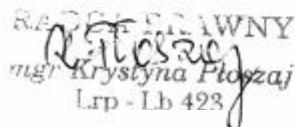 RADCA PRAWNY
mgr Krystyna Płoszaj
Lrp - Lb 423